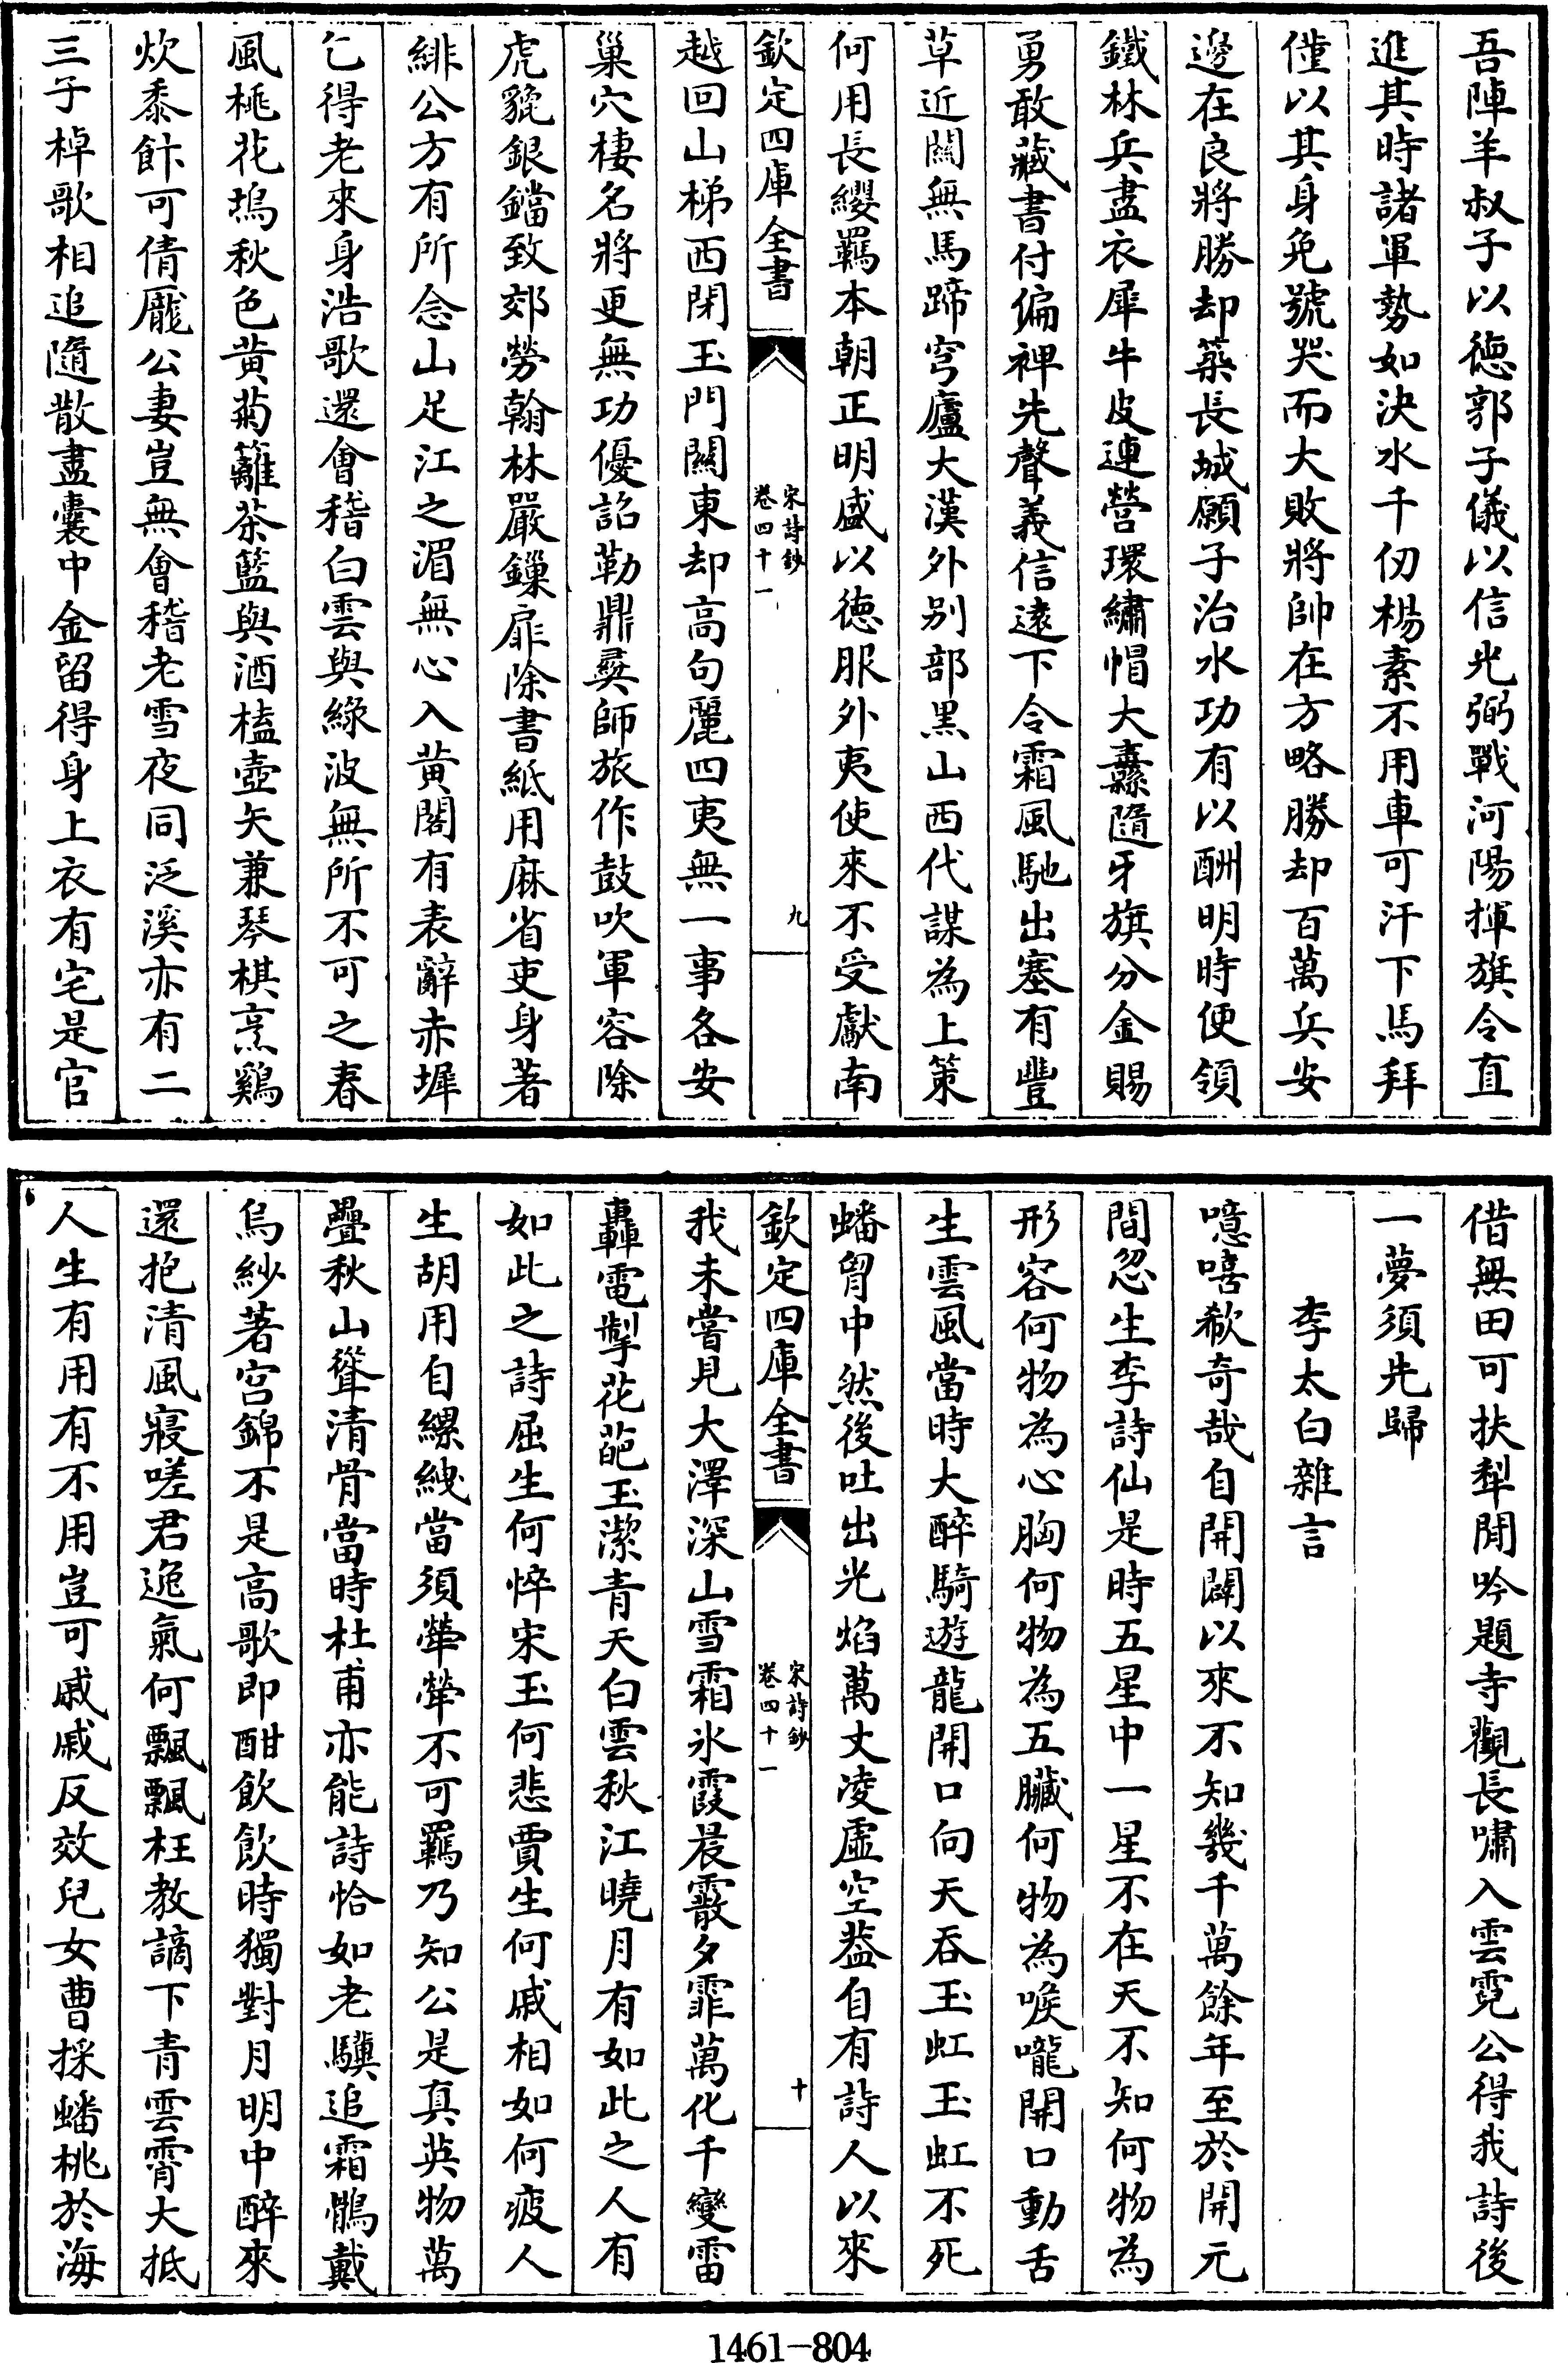 吾陣羊叔子以徳郭子儀以信光弼戰河陽揮旗令直
進其時諸軍勢如決水千仭楊素不用車可汗下馬拜
僅以其身免號哭而大敗將帥在方略勝却百萬兵安
邊在良將勝却築長城願子治水功有以酬明時便領
鐵林兵盡衣犀牛皮連營環繡帽大纛隨牙旗分金賜
勇敢藏書付偏裨先聲義信遠下令霜風馳出塞有豐
草近關無馬蹄穹廬大漠外别部黒山西代謀為上策
何用長纓羈本朝正明盛以徳服外夷使來不受獻南
欽定四庫全書
宋詩鈔
卷四十一
九
越回山梯西閉玉門關東却高句麗四夷無一事各安
巢穴棲名將更無功優詔勒鼎彛師旅作鼓吹軍容除
虎貔銀鐺致郊勞翰林嚴鏁扉除書紙用麻省吏身著
緋公方有所念山足江之湄無心入黄閣有表辭赤墀
乞得老來身浩歌還會稽白雲與緑波無所不可之春
風桃花塢秋色黄菊籬茶籃與酒榼壺矢兼琴棋烹鷄
炊黍飰可倩龎公妻豈無會稽老雪夜同泛溪亦有二
三子棹歌相追隨散盡囊中金留得身上衣有宅是官
借無田可扶犁閒吟題寺觀長嘯入雲霓公得我詩後
一夢須先歸
李太白雜言
噫嘻欷奇哉自開闢以來不知幾千萬餘年至於開元
間忽生李詩仙是時五星中一星不在天不知何物為
形容何物為心胸何物為五臟何物為喉嚨開口動舌
生雲風當時大醉騎遊龍開口向天吞玉虹玉虹不死
蟠胷中然後吐出光焰萬丈凌虛空葢自有詩人以來
欽定四庫全書
宋詩鈔
卷四十一
十
我未嘗見大澤深山雪霜氷霞晨霰夕霏萬化千變雷
轟電掣花葩玉潔青天白雲秋江曉月有如此之人有
如此之詩屈生何悴宋玉何悲賈生何戚相如何疲人
生胡用自縲紲當須犖犖不可羈乃知公是真英物萬
疊秋山聳清骨當時杜甫亦能詩恰如老驥追霜鶻戴
烏紗著宮錦不是高歌即酣飲飲時獨對月明中醉來
還抱清風寢嗟君逸氣何飄飄枉教謫下青雲霄大抵
人生有用有不用豈可戚戚反效兒女曹採蟠桃於海
1461-804